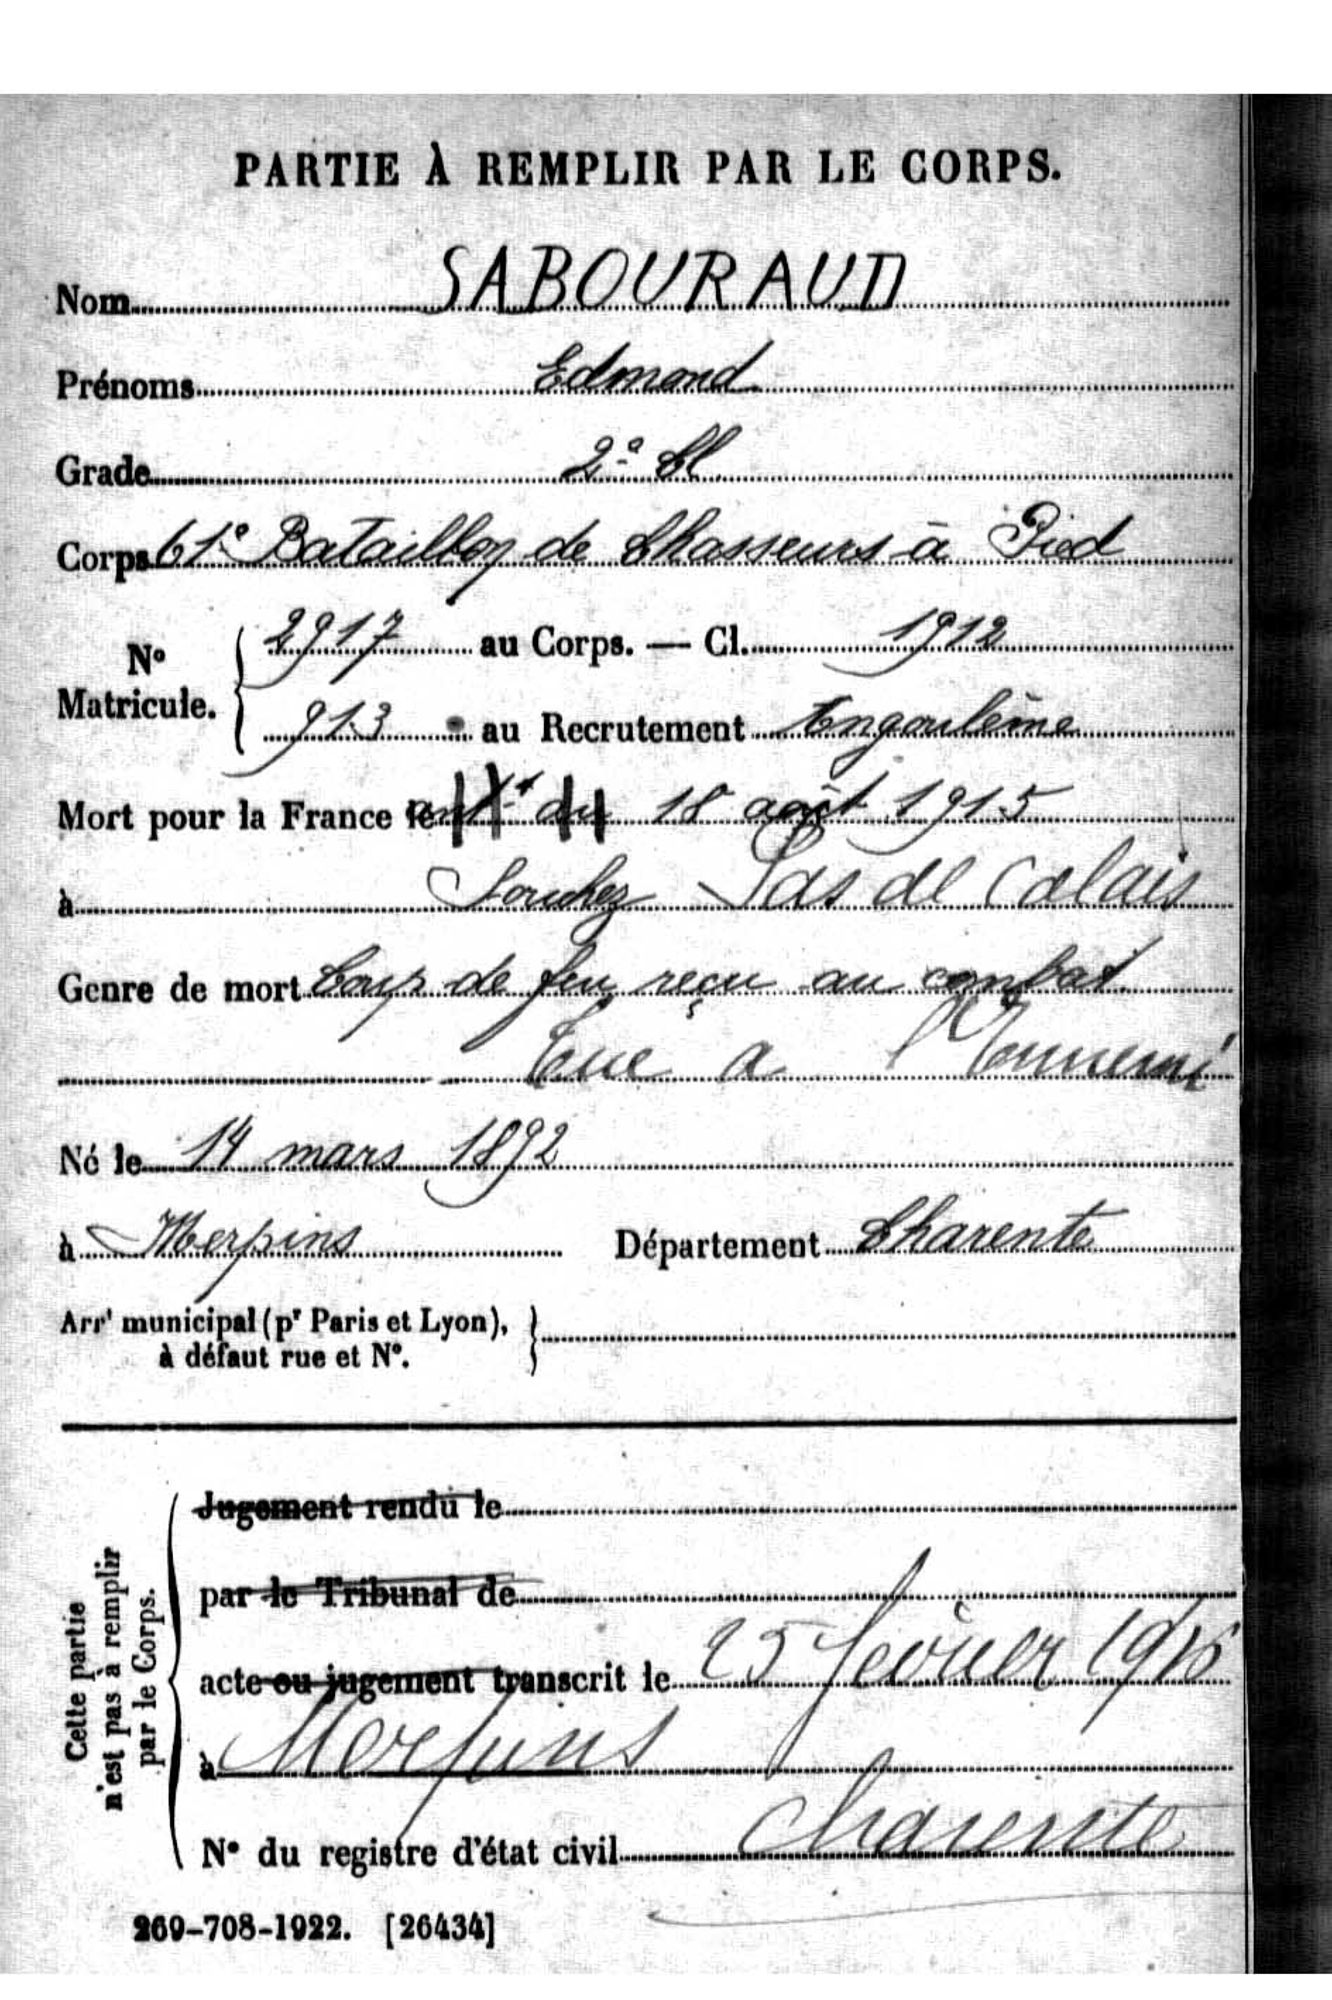 PARTIE À REMPLIR PAR LE CORPS.
Nom SABOURAUD
Prénoms Edmond
Grade 2e Cl
Corps 61e Bataillon de Chasseurs à Pied
No Maticule. 2917 au Corps. — Cl. 1912
913 au Recrutement Angoulême
Mort pour la France le antt au 18 août 1915
à Souchez Pas de Calais
Genre de mort Coup de feu reçu au combat
Tué à l'Ennemi
Né le 14 mars 1892
à Merpins Département Charente
Arrt municipal (pr Paris et Lyon),
à défaut rue et No.
Cette partie n'est pas à remplir par le Corps.
Jugement rendu le
par le Tribunal de
acte ou jugement transcrit le 25 février 1916
à Merpins
No du registre d'état civil Charente
269-708-1922. [26434]